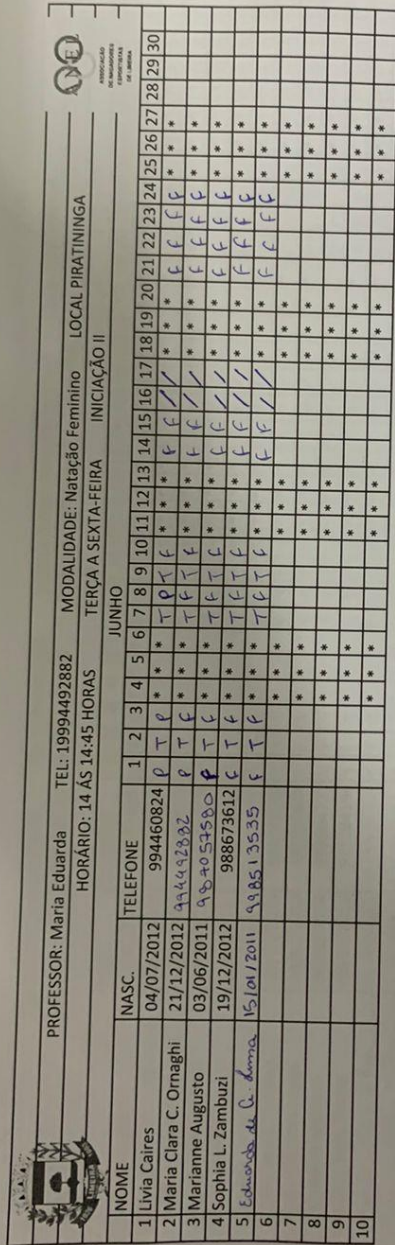 PROFESSOR: Maria Eduarda TEL: 19994492882 MODALIDADE: Natação Feminino LOCAL PIRATININGA
HORÁRIO: 14 ÁS 14:45 HORAS TERÇA A SEXTA-FEIRA INICIAÇÃO II
ANEL
ASSOCIAÇÃO
DE NADADORES
ESPORTISTAS
DE LIMEIRA
JUNHO
NOME NASC. TELEFONE 1 2 3 4 5 6 7 8 9 10 11 12 13 14 15 16 17 18 19 20 21 22 23 24 25 26 27 28 29 30
1 Livia Caires 04/07/2012 994460824 P T P * * * T P T F * * * F F / / * * * F F F F * * *
2 Maria Clara C. Ornaghi 21/12/2012 994492882 P T F * * * T F T F * * * F F / / * * * F F F F * * *
3 Marianne Augusto 03/06/2011 987057580 P T F * * * T F T F * * * F F / / * * * F F F F * * *
4 Sophia L. Zambuzi 19/12/2012 988673612 F T F * * * T F T F * * * F F / / * * * F F F F * * *
5 Eduarda de C. Lima 15/01/2011 998513535 F T F * * * T F T F * * * F F / / * * * F F F F * * *
6 * * * * * * * * * * * *
7 * * * * * * * * * * * *
8 * * * * * * * * * * * *
9 * * * * * * * * * * * *
10 * * * * * * * * * * * *